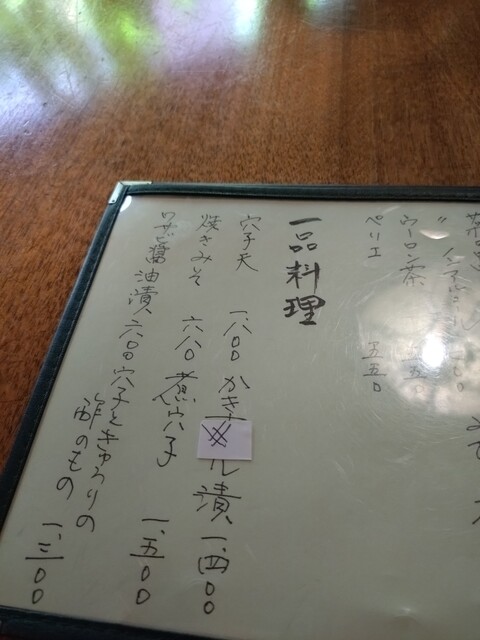 ノンアルコール
ウーロン茶 五五〇
ペリエ 五五〇
一品料理
穴子天 一、八〇〇
かきオ ル漬 一、四〇〇
焼きみそ 六八〇
煮穴子 一、五〇〇
ワサビ醤油漬 六八〇
穴子ときゅうりの
酢のもの 一、三〇〇